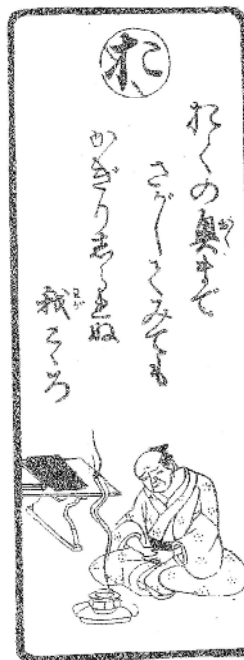 お
おくの奥まで
さがしてみても
かぎり志られぬ
我こゝろ